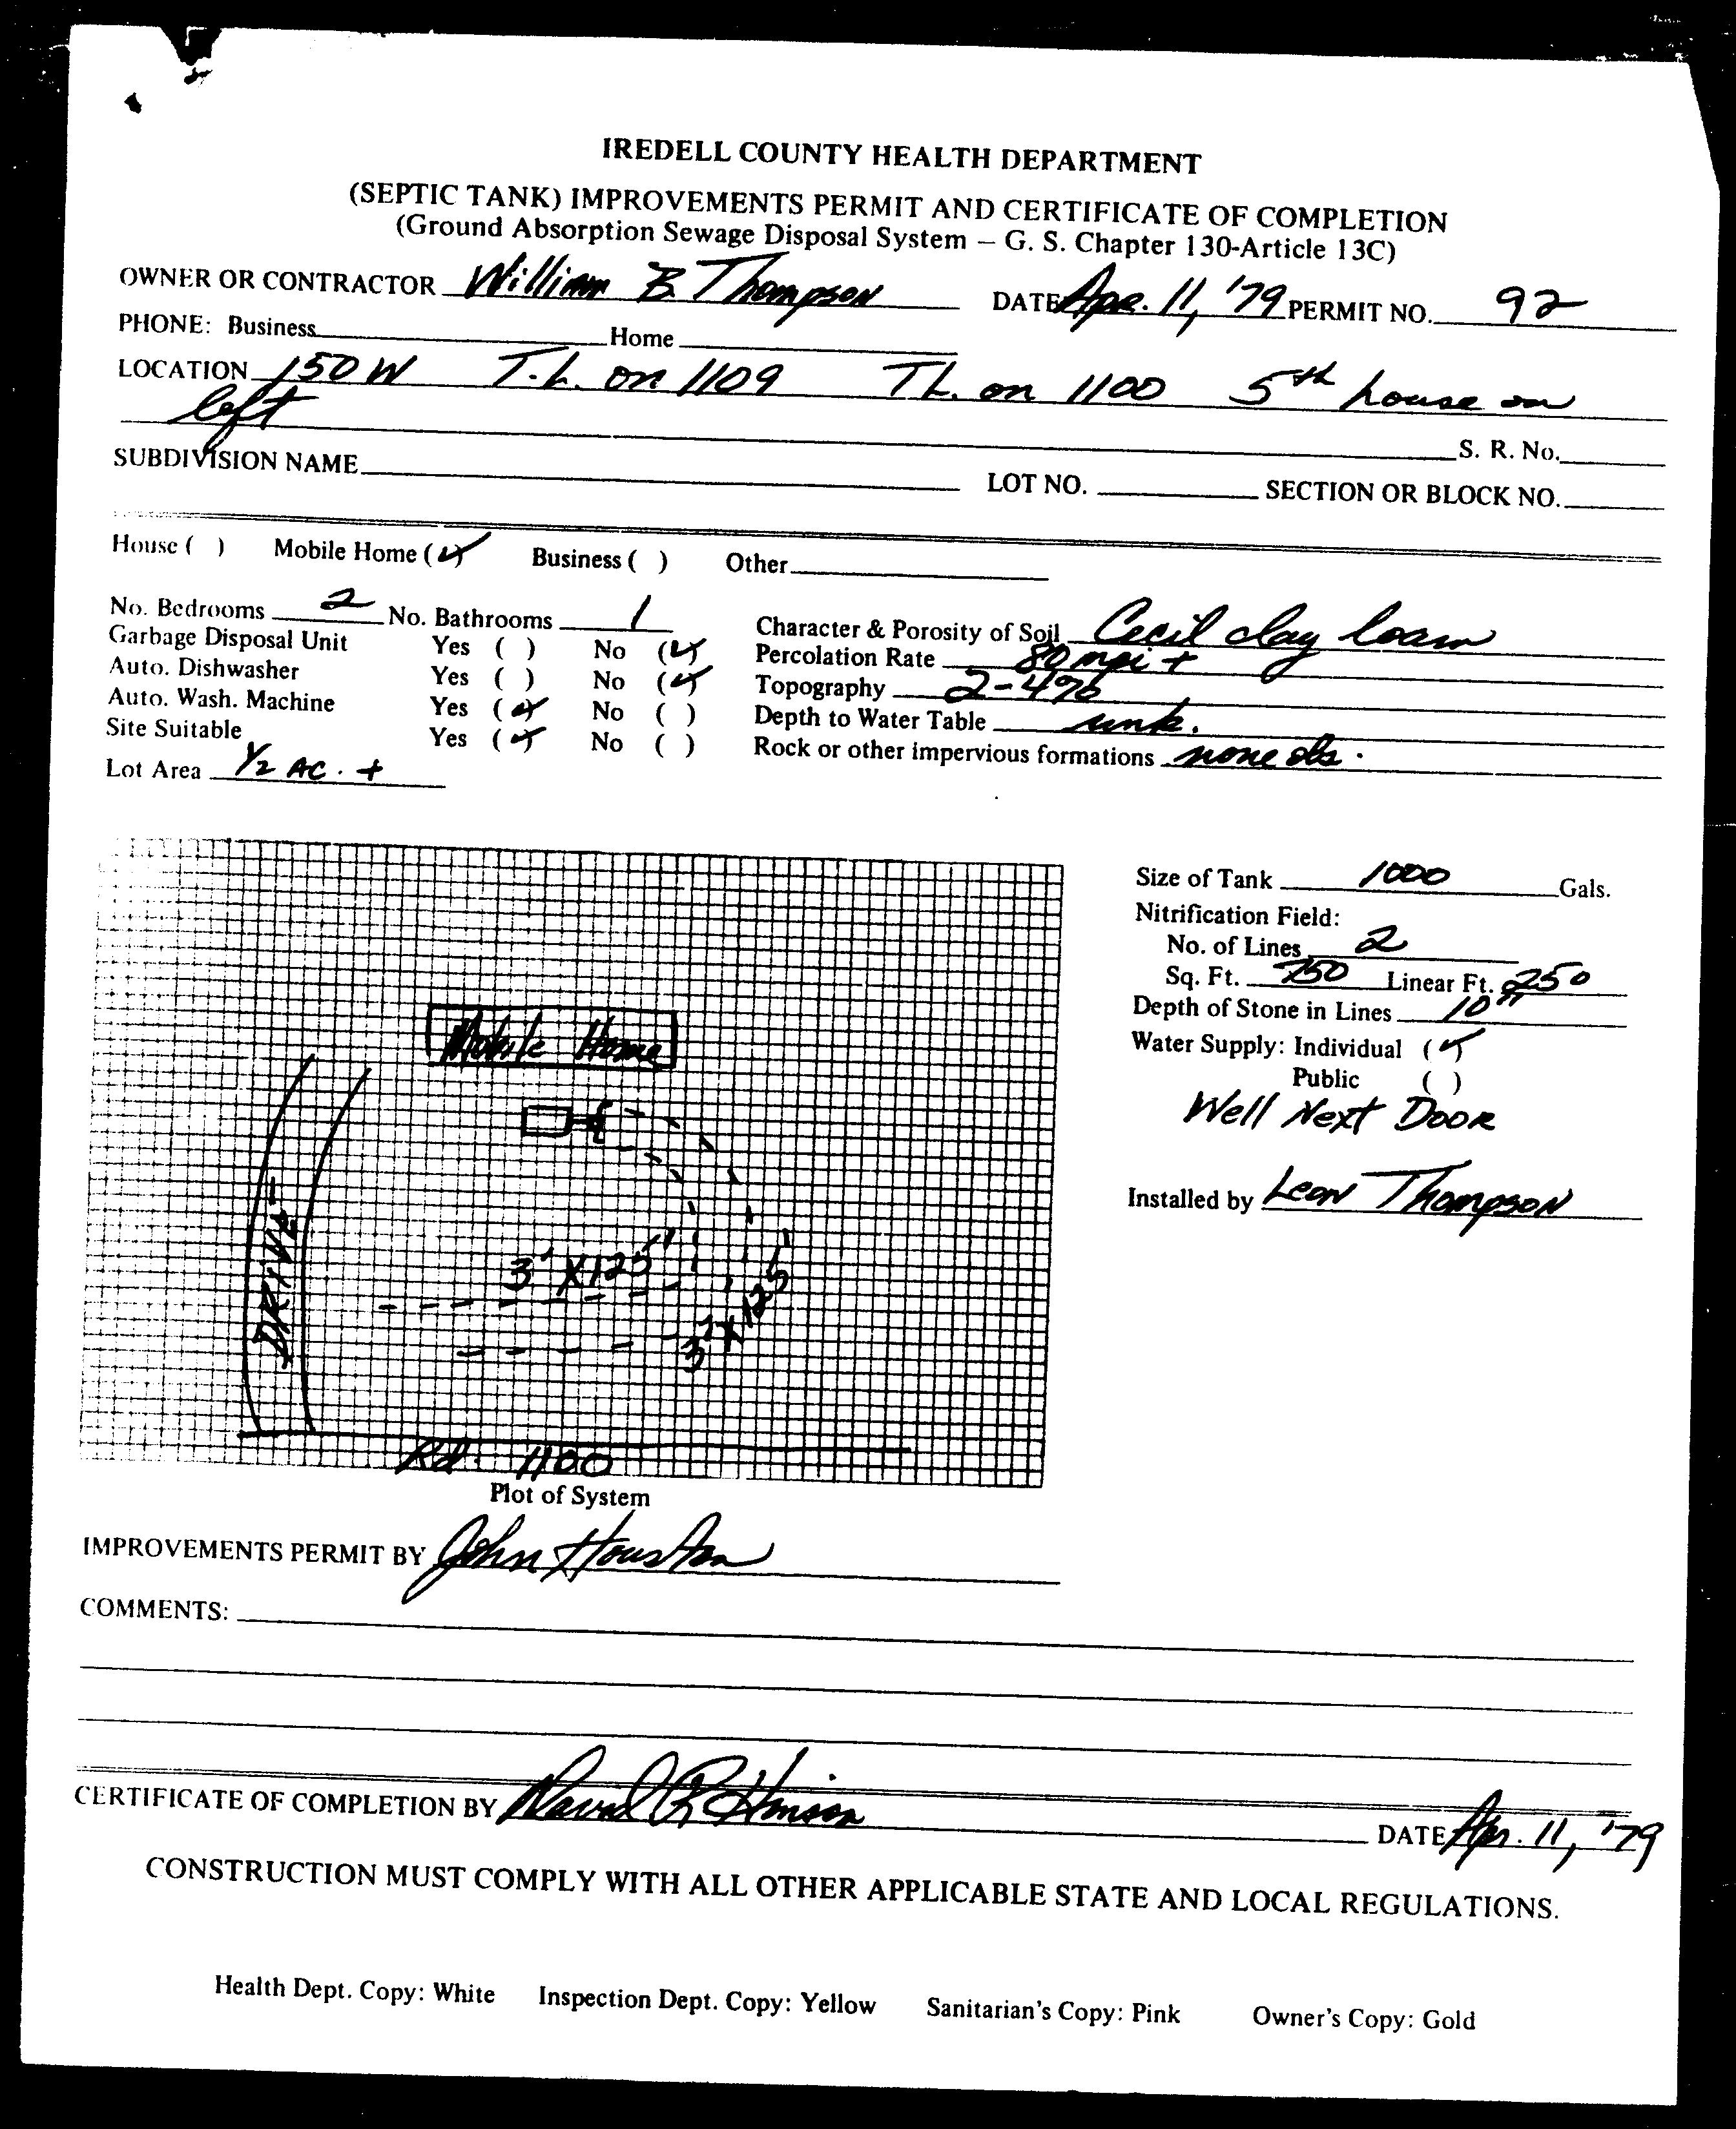 IREDELL COUNTY HEALTH DEPARTMENT
(SEPTIC TANK) IMPROVEMENTS PERMIT AND CERTIFICATE OF COMPLETION
(Ground Absorption Sewage Disposal System – G. S. Chapter 130-Article 13C)
OWNER OR CONTRACTOR William B Thompson DATE Apr. 11, '79 PERMIT NO. 92
PHONE: Business Home
LOCATION 150 W T.L. on 1109 TL. on 1100 5th house on
left
S. R. No.
SUBDIVISION NAME LOT NO. SECTION OR BLOCK NO.
House ( ) Mobile Home (✓) Business ( ) Other
No. Bedrooms 2 No. Bathrooms 1
Garbage Disposal Unit Yes ( ) No (✓)
Auto. Dishwasher Yes ( ) No (✓)
Auto. Wash. Machine Yes (✓) No ( )
Site Suitable Yes (✓) No ( )
Lot Area 1/2 AC. +
Character & Porosity of Soil Cecil clay loam
Percolation Rate 80 mpi +
Topography 2-4%
Depth to Water Table unk.
Rock or other impervious formations none obs.
Size of Tank 1000 Gals.
Nitrification Field:
No. of Lines 2
Sq. Ft. 750 Linear Ft. 250
Depth of Stone in Lines 10"
Water Supply: Individual (✓)
Public ( )
Well Next Door
Installed by Leon Thompson
Mobile Home
DRIVE
3' X 125'
3' X 125'
Rd. 1100
Plot of System
IMPROVEMENTS PERMIT BY John Houston
COMMENTS:
CERTIFICATE OF COMPLETION BY David R Hinson
DATE Apr. 11, '79
CONSTRUCTION MUST COMPLY WITH ALL OTHER APPLICABLE STATE AND LOCAL REGULATIONS.
Health Dept. Copy: White Inspection Dept. Copy: Yellow Sanitarian's Copy: Pink Owner's Copy: Gold